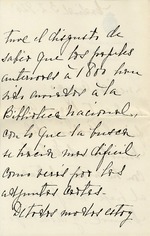 tuve el disgusto de
saber que los papeles
anteriores a 1800 han
sido enviados a la
Biblioteca Nacional,
con lo que la busca
se hacia mas dificil,
como verás por los
adjuntos cartas.
De todos modos estoy